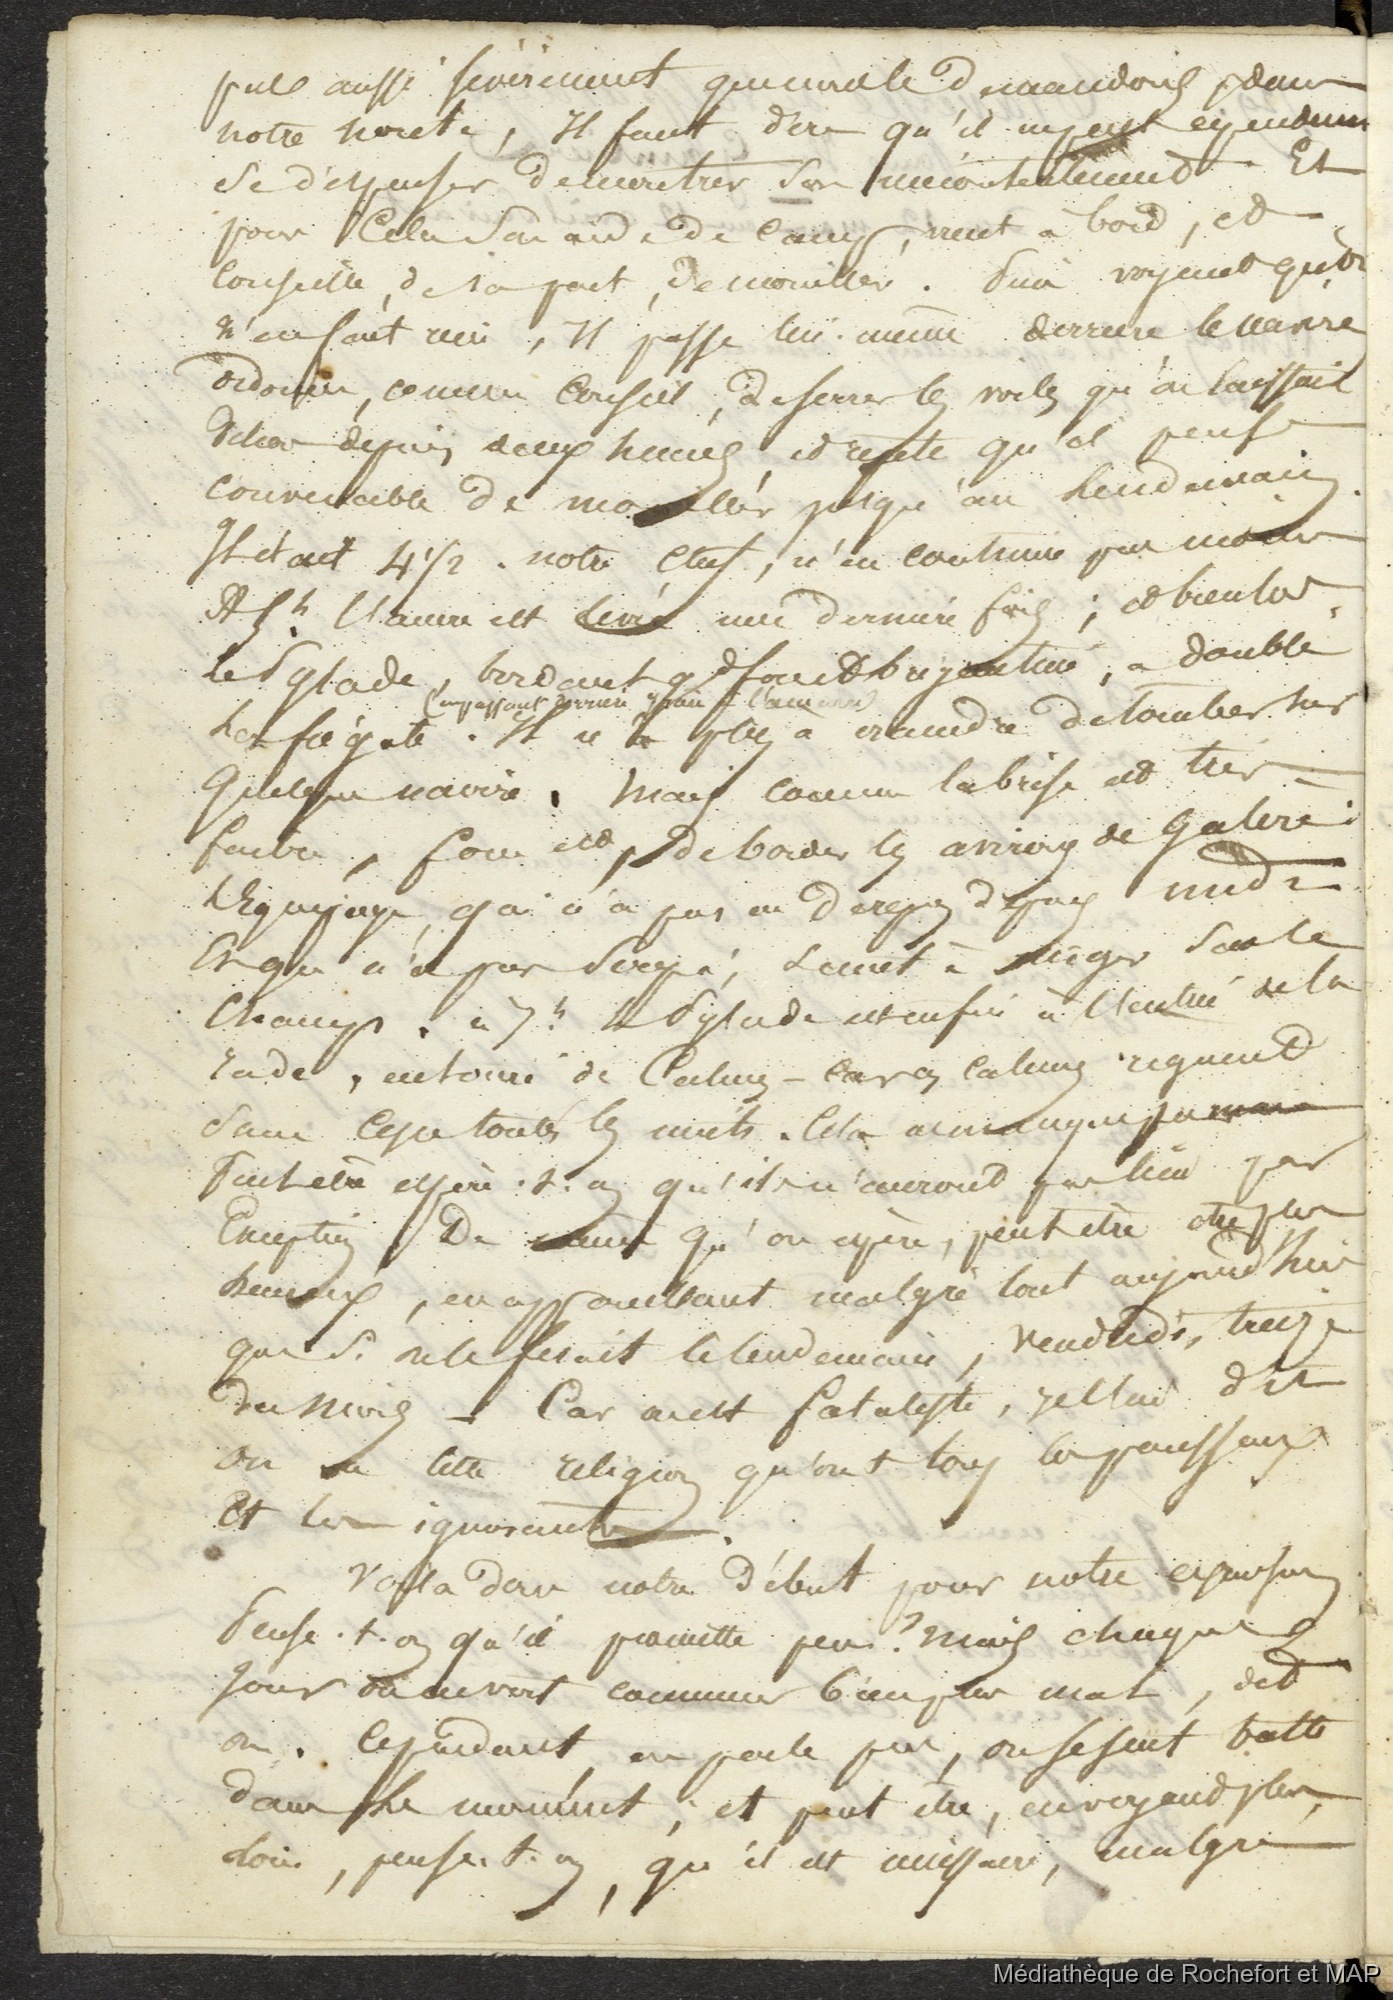 aussi sévèrement que nous le demandons dans
notre note, Il faut dire qu'il ne peut cependant
se dispenser de montrer son mécontentement. Et
pour Cela Son aide de Camp, vient à bord, et
Conseille, de sa part, de mouiller. Puis voyant qu'on
n'en fait rien, Il passe lui-même derrière le navire
ordonne, comme Conseil, de serrer les voiles qu'on laissait
depuis deux heures, et répète qu'il pense
convenable de mouiller jusqu'au lendemain.
Il était 4 1/2. notre Chef, n'en continue pas moins
A 5.h l'ancre est levée une dernière fois ; et bientôt
le Pylade, bordant gd foc et brigantine, a doublé
(en passant derrière l'amiral)
les frégates. Il n'a plus à craindre de tomber sur
Quelque navire. Mais comme la brise est très
faible, force est, de border les avirons de galère :
L'équipage, qui n'a pas eu de repos depuis midi
Et qui n'a pas soupé, se met à nager sur le
Champ. à 7.h le Pylade est enfin à l'entrée de la
rade, entouré de Calmes - Car les calmes règnent
dans toutes les nuits. Cela ne manque jamais
Peut être espère-t-on qu'ils n'auront pas lieu par
Exception De même qu'on espère, peut être être plus
heureux, en appareillant malgré tout aujourd'hui
que Si on le fesait le lendemain, Vendredi, treize
du Mois - Car on est fataliste, dit
on a cette religion qu'ont tous les paresseux
Et les ignorants.
Voilà donc notre début pour notre expansion
Pense-t-on qu'il promette peu ? Mais chaque
jour on en voit commencer bien plus mal, dit
on. Cependant, on parle peu, on se sent battu
dans le moment ; et peut être, en voyant plus
loin, pense-t-on, qu'il est nécessaire, malgré
Médiathèque de Rochefort et MAP